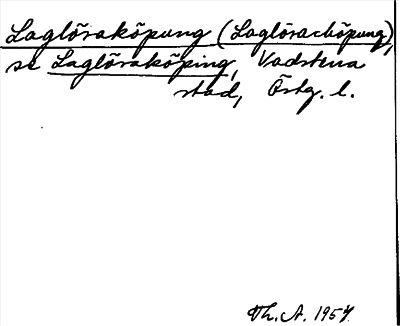 Laglöraköpung (Laglöracböpung),
se Laglöraköping, Vadstena
stad, Östg. l.
Th. A. 1957.